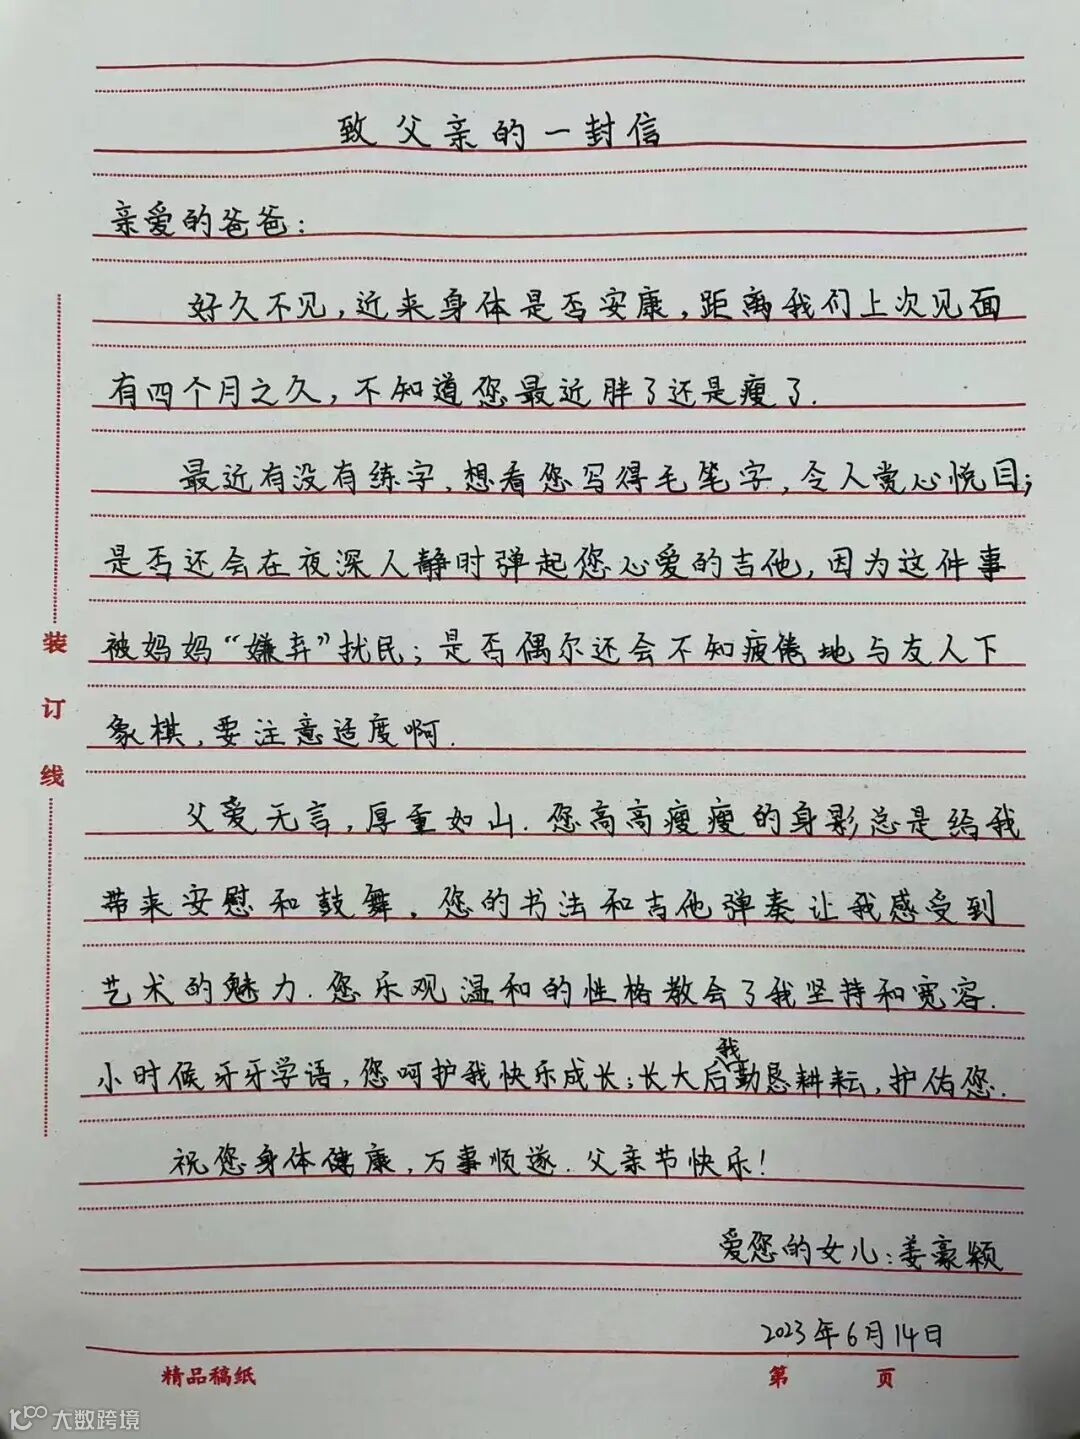 致父亲的一封信
亲爱的爸爸：
好久不见，近来身体是否安康，距离我们上次见面
有四个月之久，不知道您最近胖了还是瘦了.
最近有没有练字，想看您写得毛笔字，令人赏心悦目；
是否还会在夜深人静时弹起您心爱的吉他，因为这件事
被妈妈“嫌弃”扰民；是否偶尔还会不知疲倦地与友人下
象棋，要注意适度啊.
父爱无言，厚重如山.您高高瘦瘦的身影总是给我
带来安慰和鼓舞，您的书法和吉他弹奏让我感受到
艺术的魅力.您乐观温和的性格教会了我坚持和宽容.
小时候牙牙学语，您呵护我快乐成长；长大后我勤恳耕耘，护佑您.
祝您身体健康，万事顺遂.父亲节快乐！
爱您的女儿：姜豪颖
2023年6月14日
装
订
线
精品稿纸 第 页
大数跨境